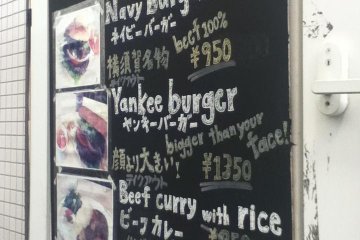 Navy Burger
ネイビーバーガー
beef 100%
横須賀名物
¥950
テイクアウト
Yankee burger
ヤンキーバーガー
bigger than your face!
顔より大きい!
テイクアウト
¥1350
Beef curry with rice
ビーフカレー